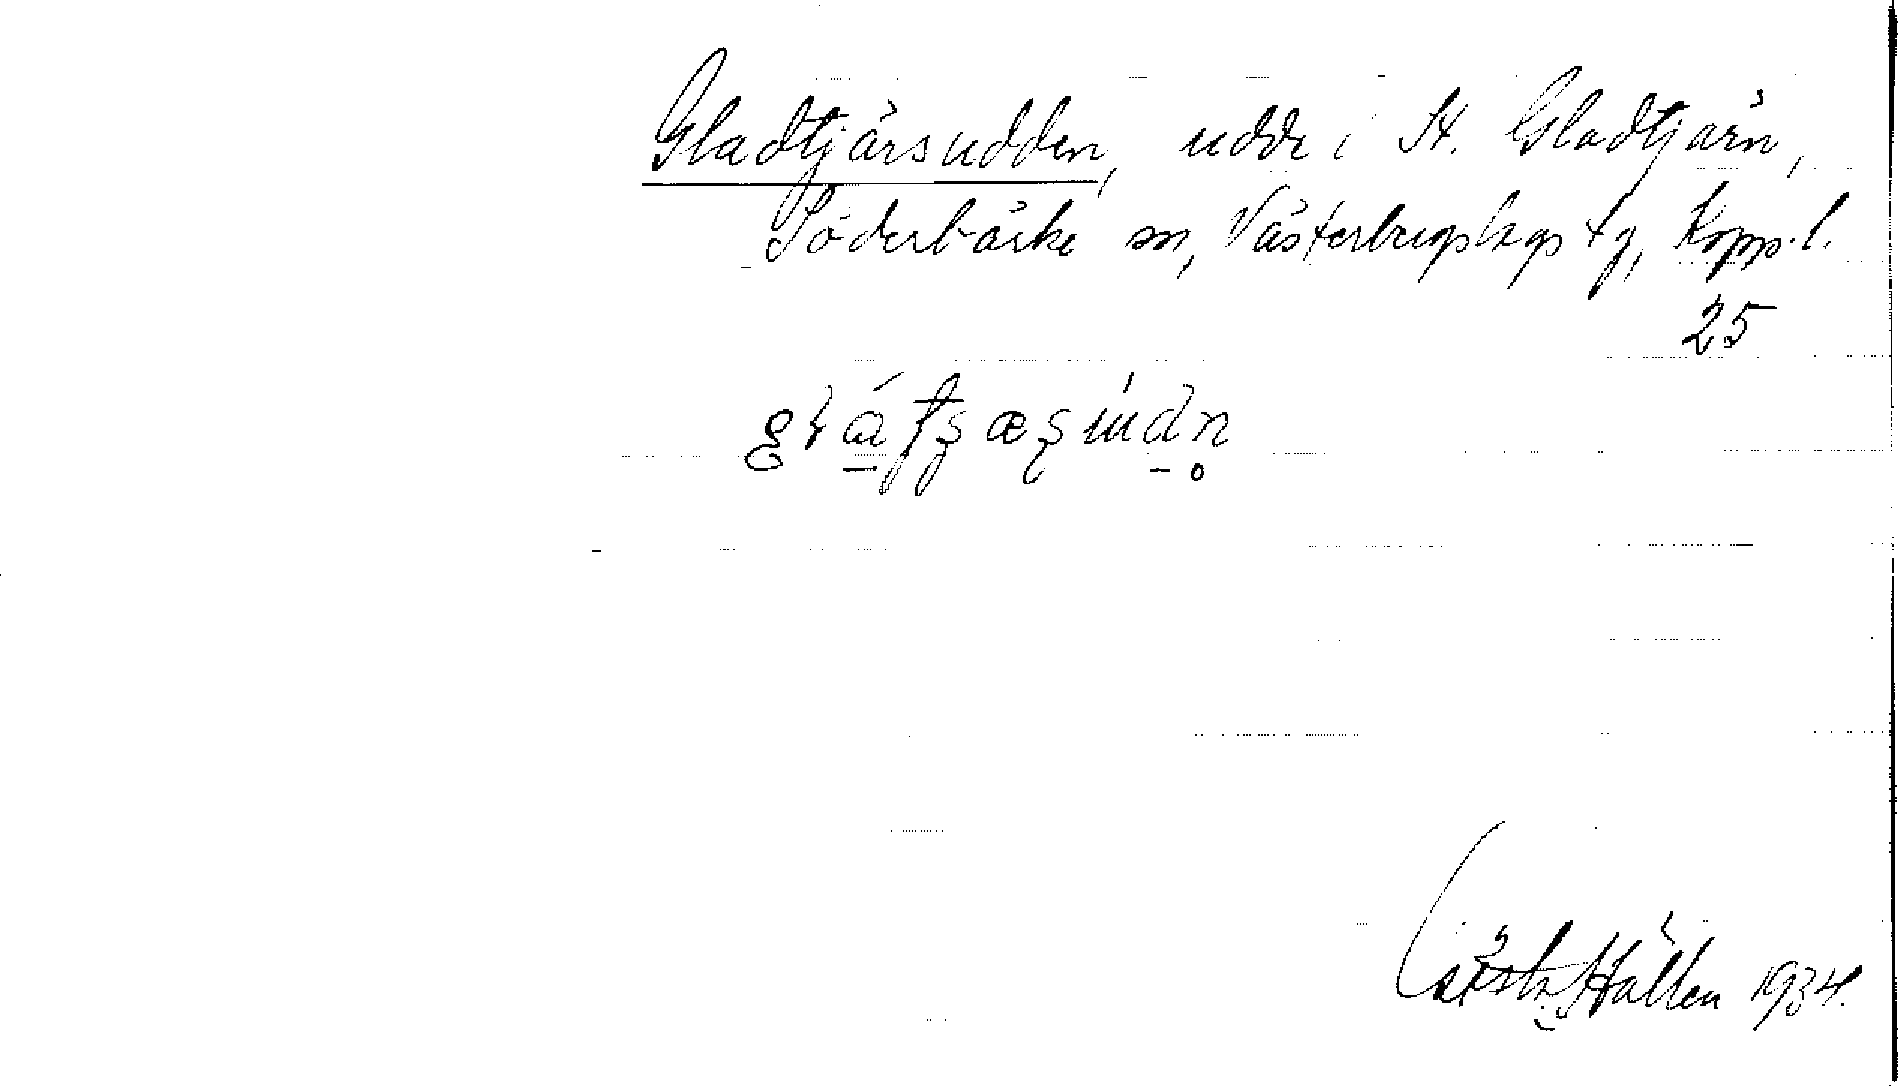 Gladtjärsudden, udde i St. Gladtjärn,
Söderbärke sn, Västerbergslags tg, Kopp. l.
25
Hållén 1934.